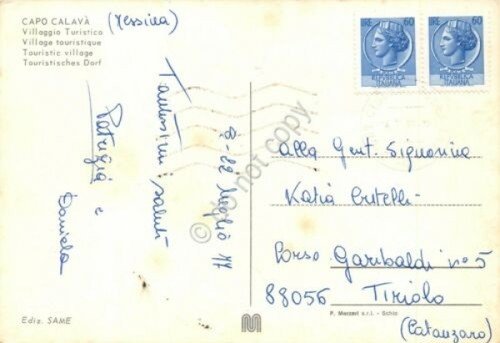 CAPO CALAVÀ (Messina)
Villaggio Turistico
Village touristique
Touristic village
Touristisches Dorf
Tantissimi saluti
Patrizia e
Daniela
Luglio 77
LIRE 60
REPUBBLICA
ITALIANA
LIRE 60
REPUBBLICA
ITALIANA
Alla Gent. Signorina
Katia Critelli
Corso Garibaldi n° 5
88056 TIRIOLO
(Catanzaro)
do not copy
Ediz. SAME
M
P. Marzari s.r.l. - Schio